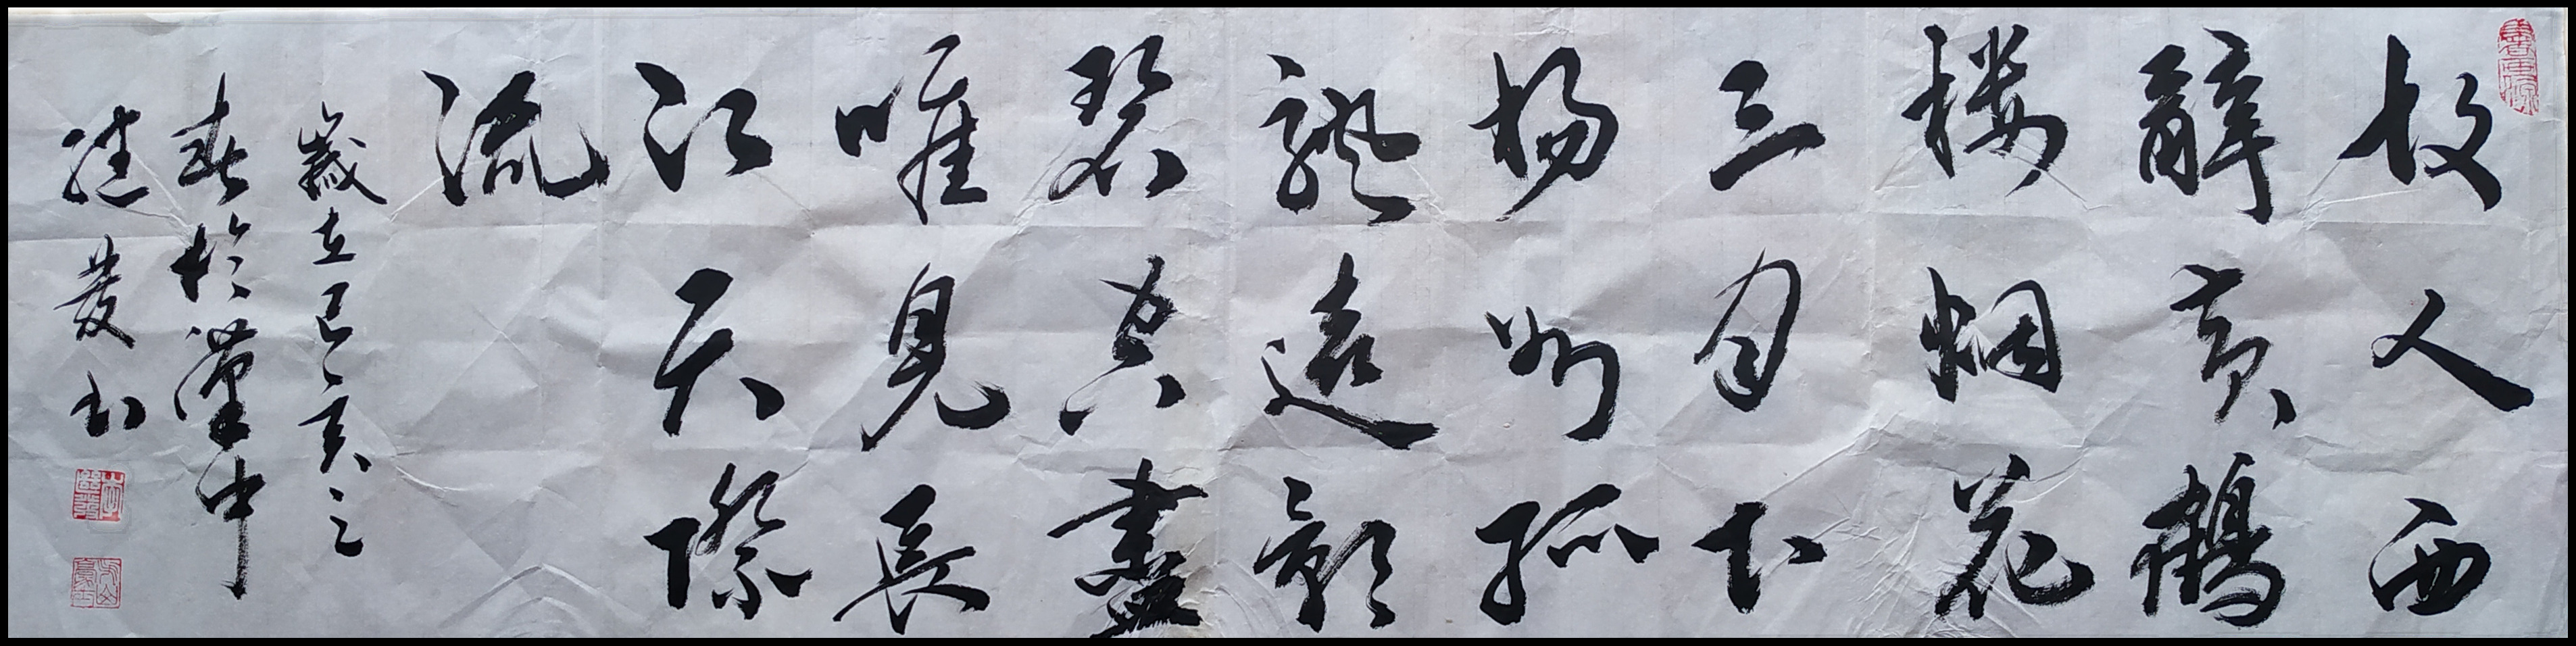 故人西
辭黄鶴
樓烟花
三月下
揚州孤
帆遠影
碧空盡
唯見長
江天際
流
歲在己亥之
春於漢中
繼發书
李繼發